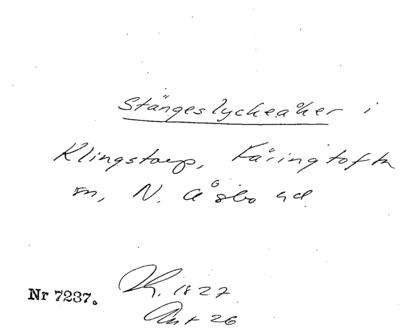 Stängeslyckeåker i
Klingstorp, Färingtofta
sn, N. Åsbo hd
Nr 7237. 1827
26